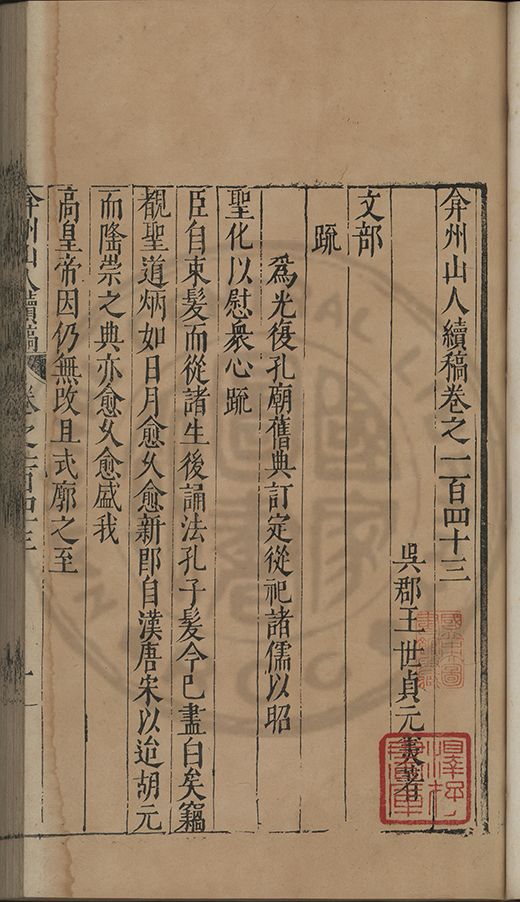 弇州山人續稿卷之一百四十三
吳郡王世貞元美著
文部
疏
為光復孔廟舊典訂定從祀諸儒以昭
聖化以慰衆心疏
臣自束髮而從諸生後誦法孔子髮今已盡白矣竊
覩聖道炳如日月愈久愈新即自漢唐宋以迨胡元
而隆崇之典亦愈久愈盛我
高皇帝因仍無改且式廓之至
弇州山人續稿 卷之一百四十三 一